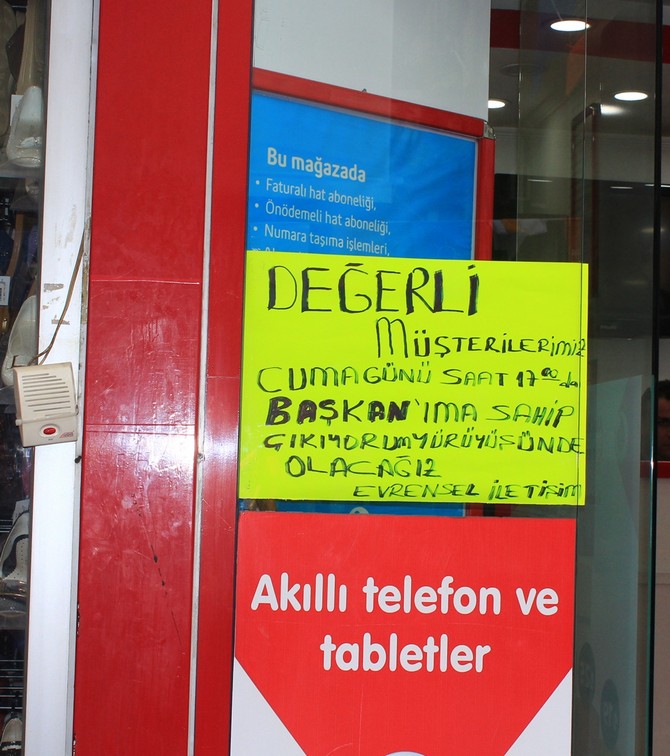 Bu mağazada
• Faturalı hat aboneliği,
• Önödemeli hat aboneliği,
• Numara taşıma işlemleri,
DEĞERLİ
MÜŞTERİLERİMİZ
CUMA GÜNÜ SAAT 17⁰⁰da
BAŞKAN'IMA SAHİP
ÇIKIYORUM YÜRÜYÜŞÜNDE
OLACAĞIZ
EVRENSEL İLETİŞİM
Akıllı telefon ve
tabletler